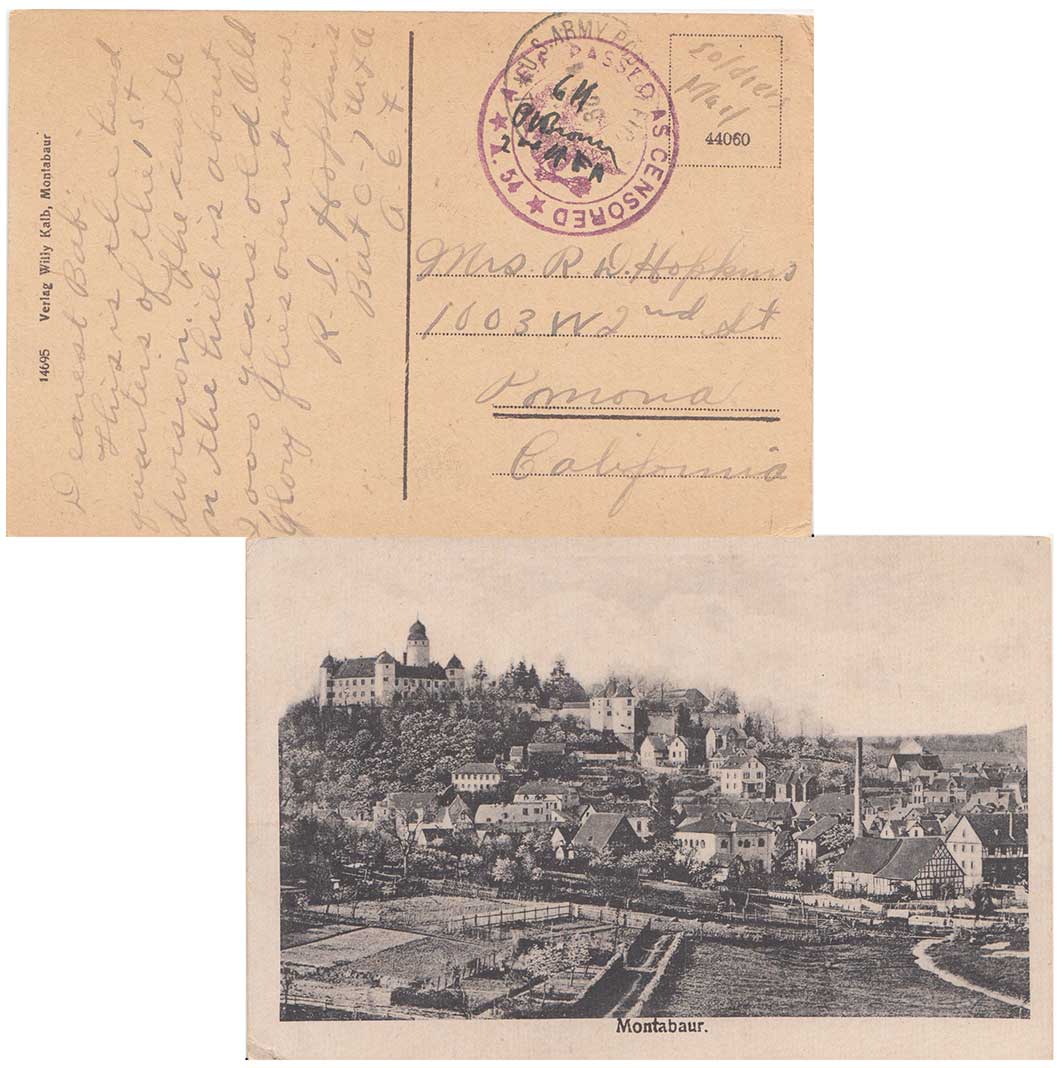 Dearest Bab:
This is the head
quarters of the 1st
division. The castle
on the hill is about
1000 years old. Old
glory flies over it now
R. D. Hopkins
Bat C-7th F A
A. E. F.
14695 Verlag Willy Kalb, Montabaur
U.S. ARMY POST
A.E.F. PASSED AS CENSORED
A. 54
2nd
Soldiers
Mail
44060
Mrs. R. D. Hopkins
1003 W 2nd St
Pomona
California
Montabaur.